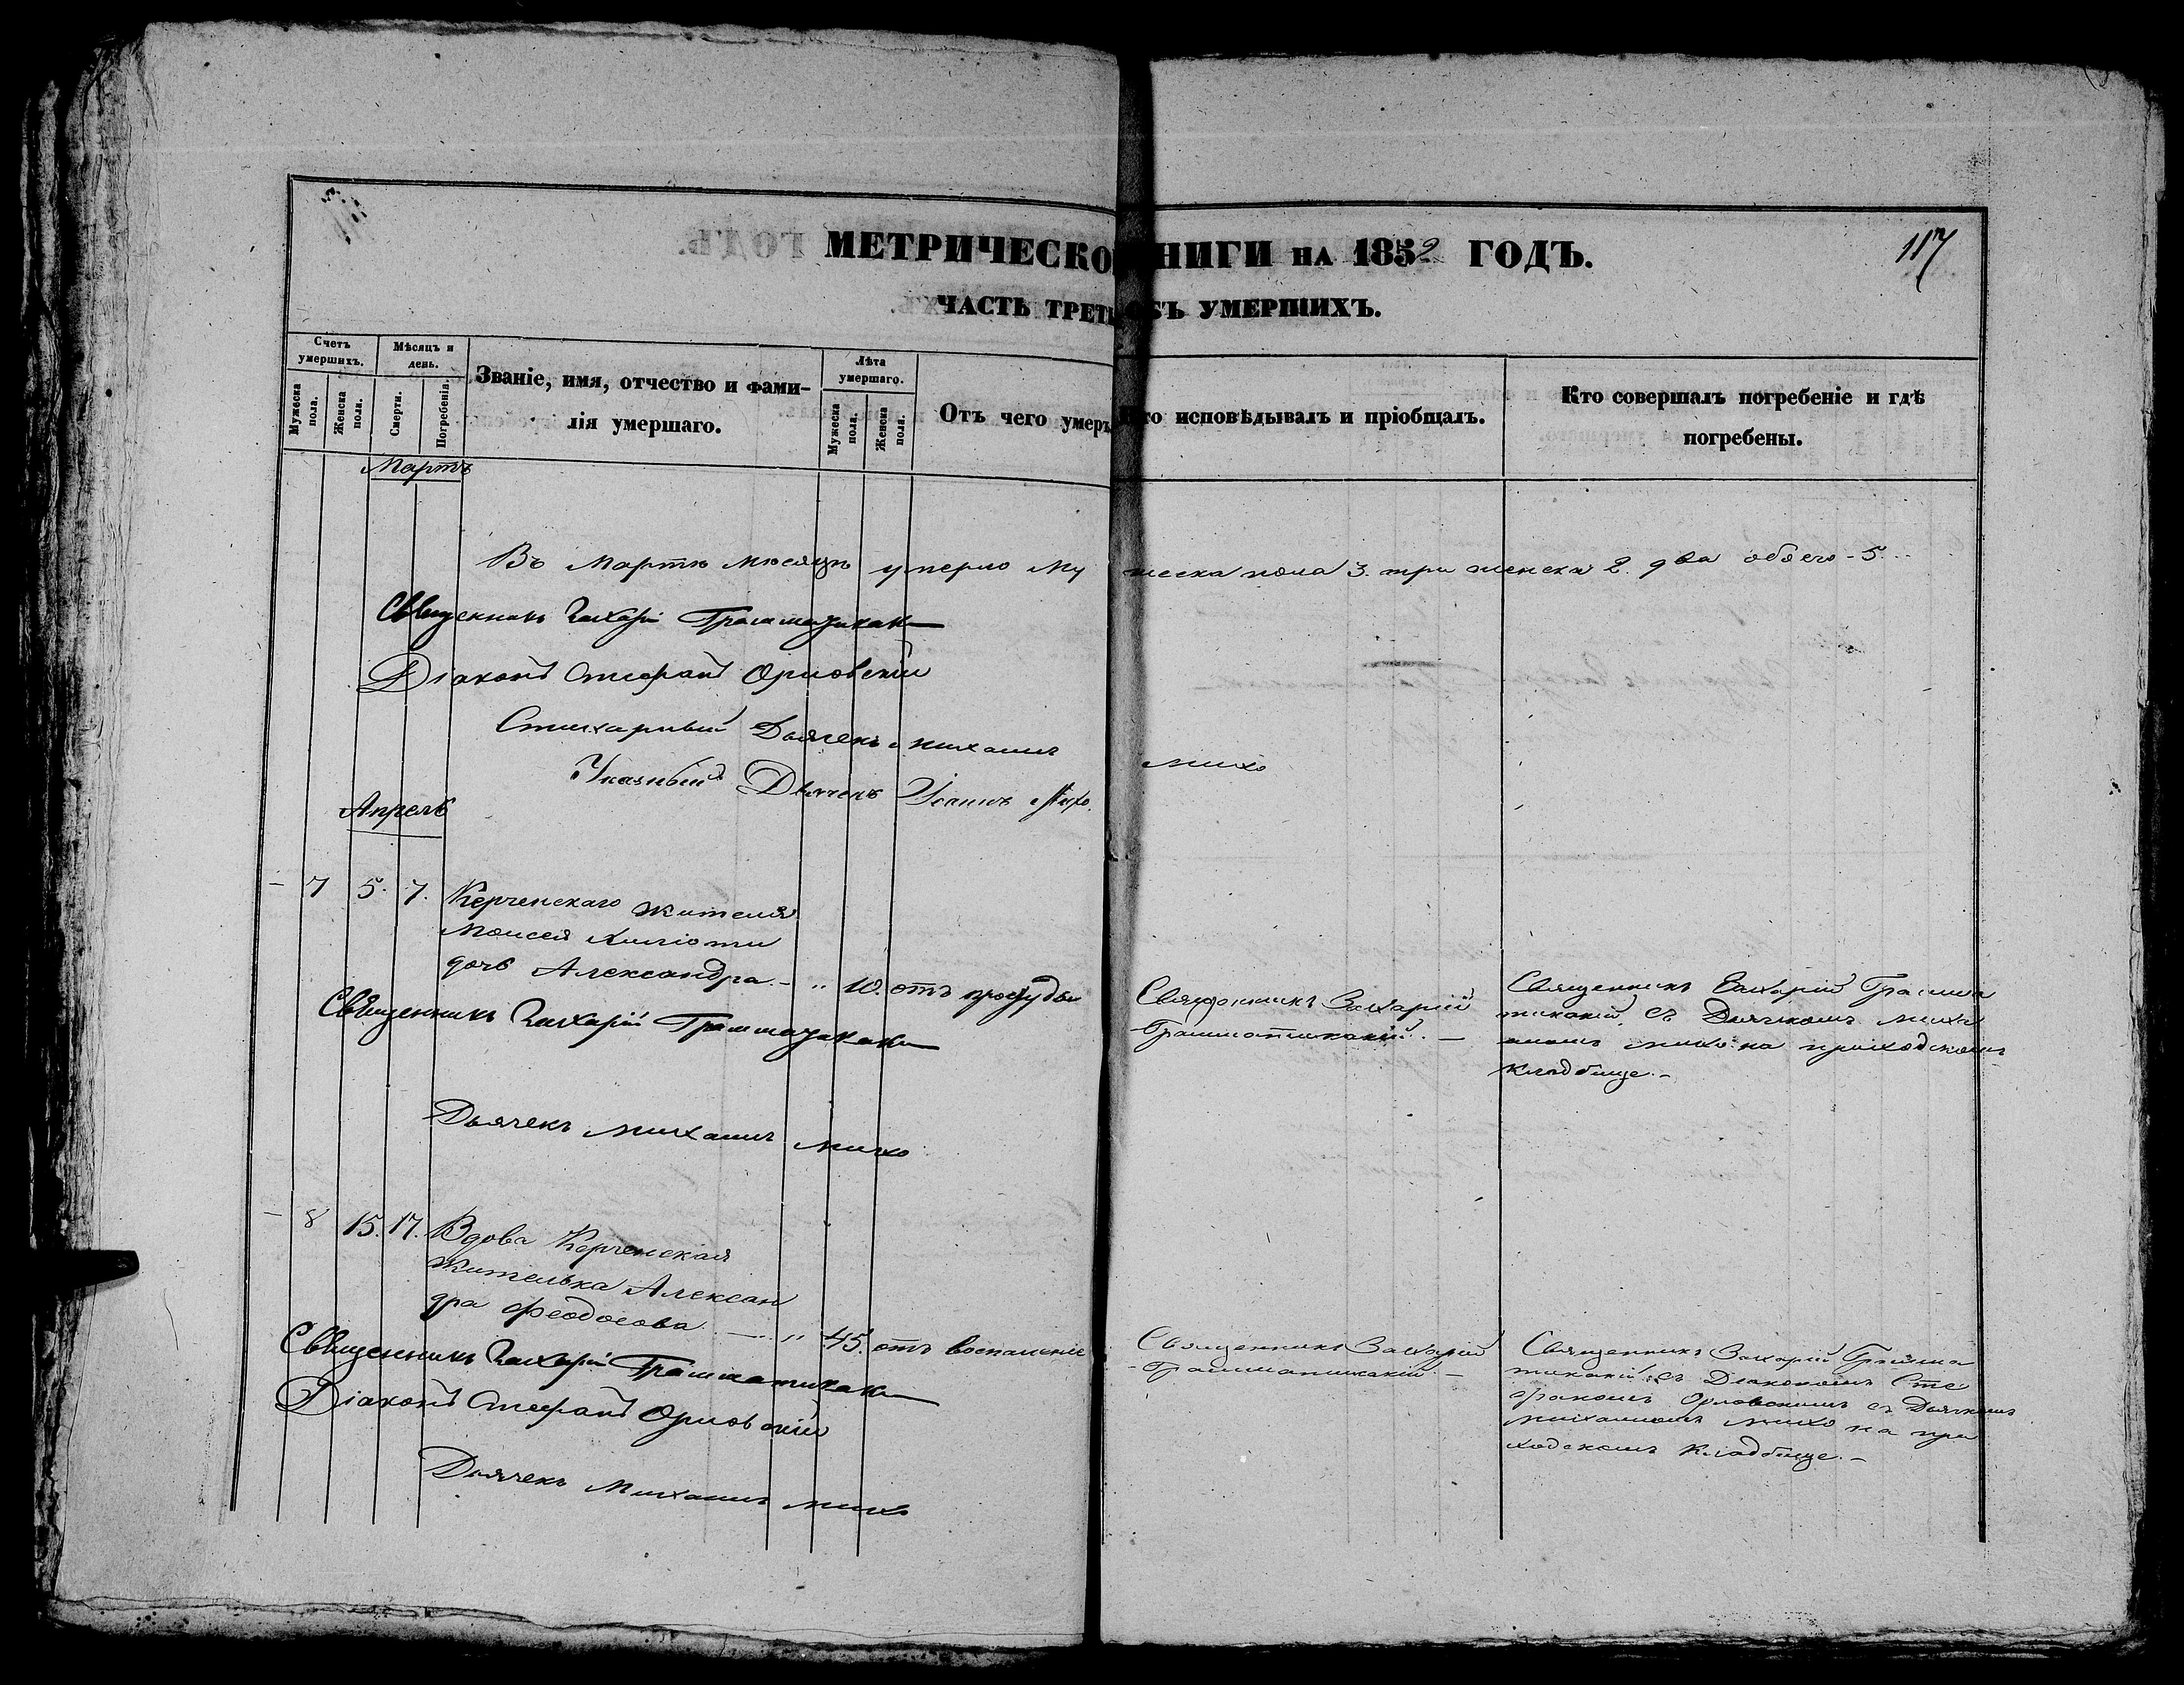 МЕТРИЧЕСКО НИГИ НА 1852 ГОДЪ.
117
ЧАСТЬ ТРЕТЬ ОБЪ УМЕРШИХЪ.
Счетъ умершихъ.
Мужеска пола.
Женска пола.
Мѣсяцъ и день.
Смерти.
Погребенія.
Званіе, имя, отчество и фами-
лія умершаго.
Лѣта умершаго.
Мужеска пола.
Женска пола.
Отъ чего умеръ
то исповѣдывалъ и пріобщалъ.
Кто совершалъ погребеніе и гдѣ
погребены.
Мартъ
Въ Мартѣ мѣсяцѣ умерло му жеска пола 3. три женска 2. два обоего - 5
Священникъ Захарій Грамматикаки
Діаконъ Стефанъ Орловскій
Стихарный Дьячекъ Михаилъ Михо
Указный Дьячекъ Іоаннъ Михо.
Апрель
- 7 5. 7. Керченскаго жителя
Моисея
дочь Александра - " 10. отъ простуды
Священникъ Захарій
Грамматикакій. -
Священникъ Захарій Грамма
тикакій съ Дьячкомъ Миха
иломъ Михо на приходскомъ
кладбище. -
Священникъ Захарій Грамматикаки
Дьячекъ Михаилъ Михо
- 8 15. 17. Вдова Керченская
жителька Алексан
дра Феодосова - " 45. отъ воспаленіе
Священникъ Захарій
Грамматикакій. -
Священникъ Захарій Грамма
тикакій съ Діакономъ Сте
фаномъ Орловскимъ съ Дьячкомъ
Михаиломъ Михо на при
ходскомъ кладбище. -
Священникъ Захарій Грамматикаки
Діаконъ Стефанъ Орловскій
Дьячекъ Михаилъ Михо